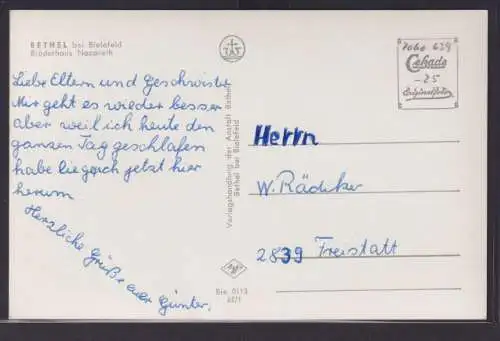 BETHEL bei Bielefeld
Brüderhaus Nazareth
Liebe Eltern und Geschwister
Mir geht es wieder besser
aber weil ich heute den
ganzen Tag geschlafen
habe liege ich jetzt hier
herum
Herzliche Grüße euer Günter.
Verlagshandlung der Anstalt Bethel
Bethel bei Bielefeld
Cekade
-25
Originalfoto
Herrn
W. Rädeker
2839 Freistatt
Bie. 0113